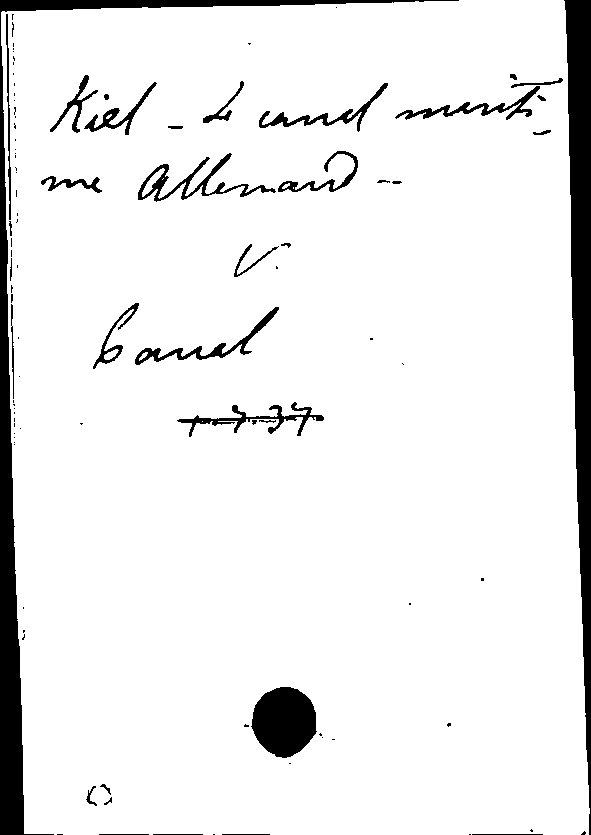 Kiel - Le canal mariti-
me Allemand -
V.
Canal
1.7.37